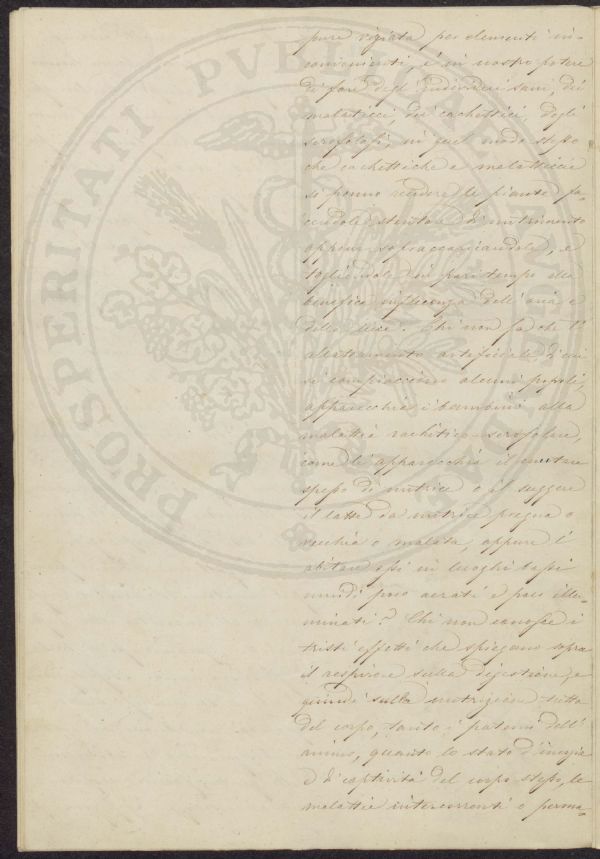 pure viziata per elementi in-
convenienti, è in nostro potere
di fare degli individui sani, dei
malaticci, dei cachettici, degli
scrofolosi, in quel modo stesso
che cachettiche e malatticcie
si ponno rendere le piante fa-
cendole stentare di nutrimento
oppure e
togliendole in pari tempo alla
benefica influenza dell'aria e
della luce. Chi non sa che l'
allattamento artificiale di cui
si compiacciono alcuni popoli,
apparecchia i bambini alla
malattia rachitico-scrofolare,
come li apparecchia il mutare
spesso di nutrice o il suggere
il latte da nutrice pregna o
vecchia o malata, oppure l'
abitare in luoghi bassi
umidi poco aerati e poco illu-
minati? Chi non conosce i
tristi effetti che spiegano sopra
il respiro e sulla digestione, e
quindi sulla nutrizione tutta
del corpo, tanto i patemi dell'
animo, quanto lo stato d'inerzia
e di cattività del corpo stesso, le
malattie intercorrenti o perma-
PROSPERITATI PVBLICAE